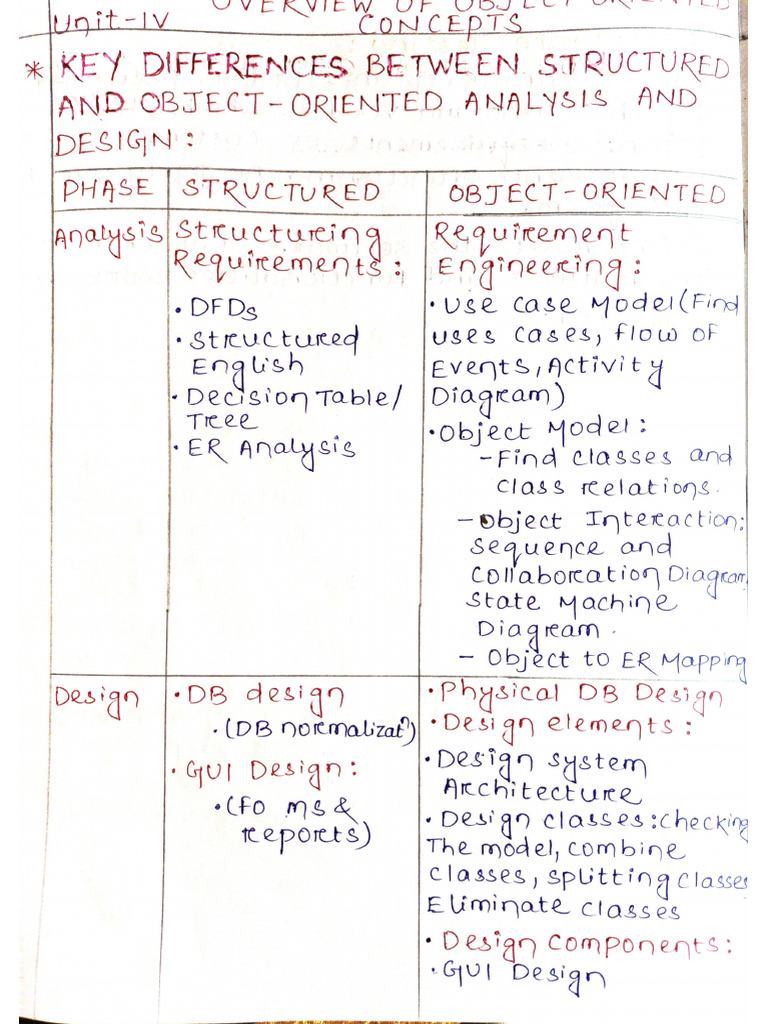 OVERVIEW OF OBJECT-ORIENTED
Unit-IV CONCEPTS
* KEY DIFFERENCES BETWEEN STRUCTURED
AND OBJECT-ORIENTED ANALYSIS AND
DESIGN:
PHASE STRUCTURED OBJECT-ORIENTED
Analysis
Structureing
Requirements:
• DFDs
• Structured
English
• Decision Table/
Tree
• ER Analysis
Requirement
Engineering:
• Use case Model(Find
uses cases, flow of
Events, Activity
Diagram)
• Object Model:
- Find classes and
class relations.
- Object Interaction:
Sequence and
Collaboration Diagram,
State Machine
Diagram.
- Object to ER Mapping
Design
• DB design
• (DB normalizatn)
• GUI Design:
• (Fo ms &
reports)
• Physical DB Design
• Design elements:
• Design system
Architecture
• Design classes: checking
The model, combine
classes, splitting classes
Eliminate classes
• Design components:
• GUI Design